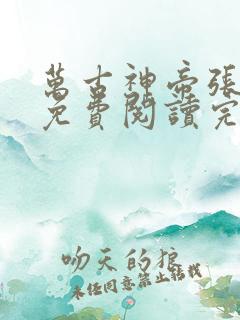 萬古神帝張
免費閱讀完
吻天的狼
未經同意禁止轉載